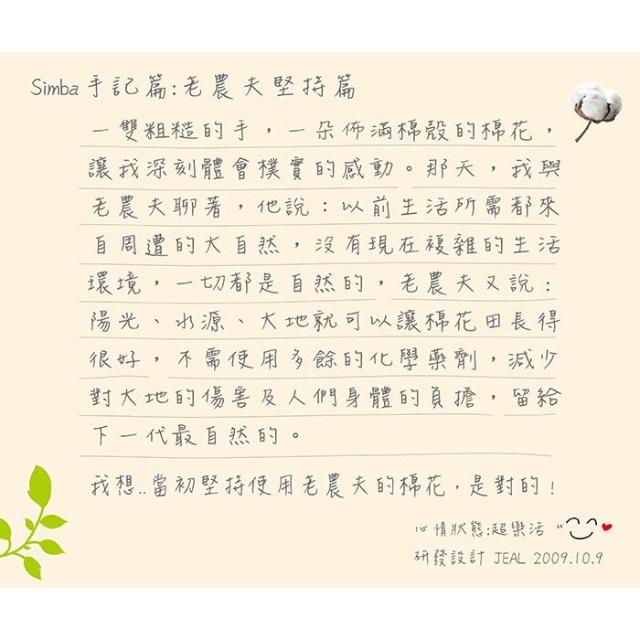 Simba手記篇:老農夫堅持篇
一雙粗糙的手，一朵佈滿棉殼的棉花，
讓我深刻體會樸實的感動。那天，我與
老農夫聊著，他說：以前生活所需都來
自周遭的大自然，沒有現在複雜的生活
環境，一切都是自然的，老農夫又說：
陽光、水源、大地就可以讓棉花田長得
很好，不需使用多餘的化學藥劑，減少
對大地的傷害及人們身體的負擔，留給
下一代最自然的。
我想..當初堅持使用老農夫的棉花，是對的！
心情狀態:超樂活
研發設計 JEAL 2009.10.9